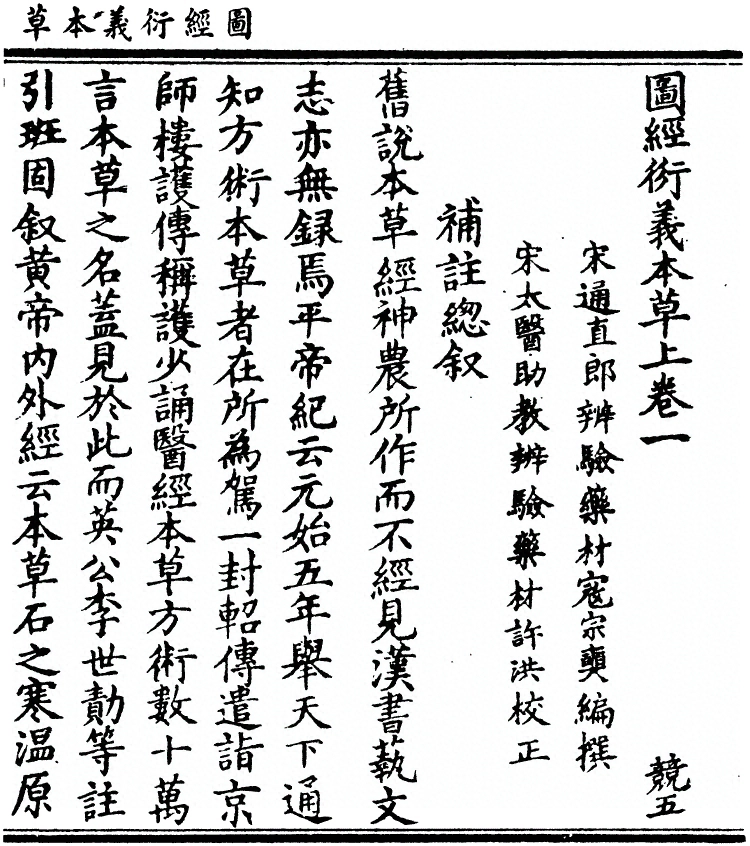 圖經衍義本草
圖經衍義本草上卷一
競五
宋通直郎辨驗藥材寇宗奭編撰
宋太醫助教辨驗藥材許洪校正
補註總叙
舊說本草經神農所作而不經見漢書藝文
志亦無録焉平帝紀云元始五年舉天下通
知方術本草者在所為駕一封軺傳遣詣京
師樓護傳稱護少誦醫經本草方術數十萬
言本草之名蓋見於此而英公李世勣等註
引班固叙黄帝内外經云本草石之寒温原